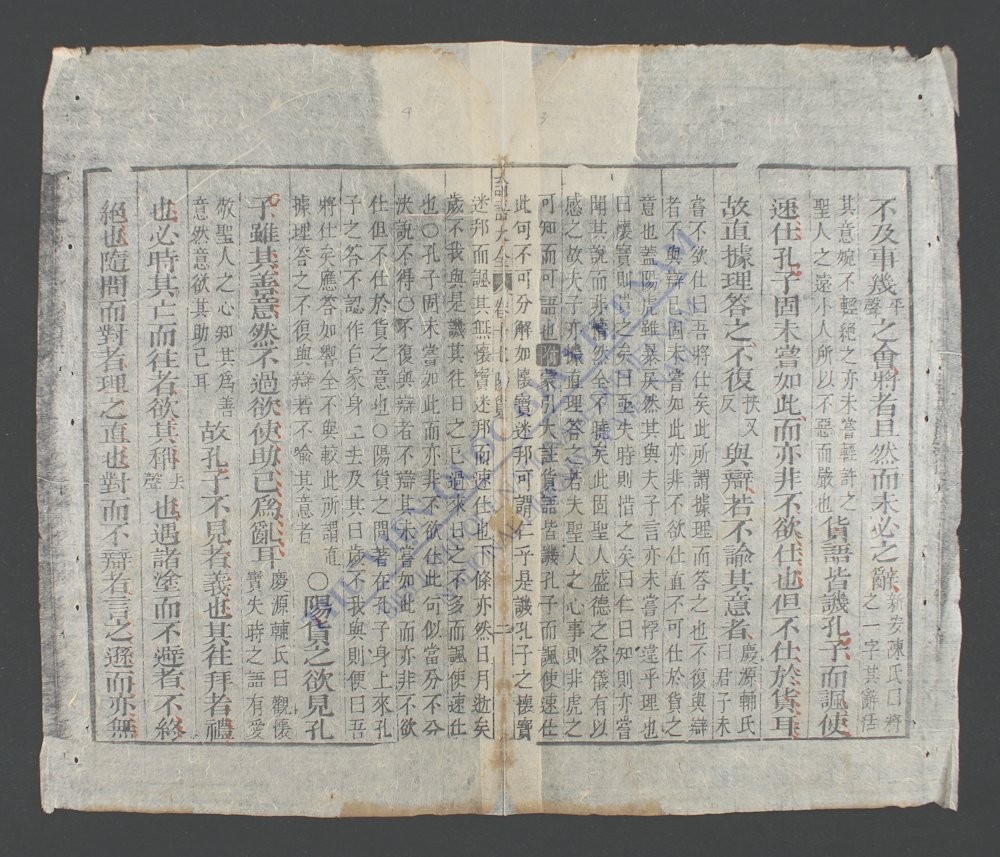 不及事幾平聲之會將者且然而未必之辭新安陳氏曰將之一字其辭活
其意婉不輕絶之亦未嘗輕許之聖人之遠小人所以不惡而嚴也貨語皆譏孔子而諷使
速仕孔子固未嘗如此而亦非不欲仕也但不仕於貨耳
故直據理答之不復扶又反與辯若不諭其意者慶源輔氏曰君子未
嘗不欲仕曰吾將仕矣此所謂據理而答之也不復與辯
者不與辯已固未嘗如此亦非不欲仕直不可仕於貨之
意也蓋陽虎雖暴戾然其與夫子言亦未嘗悖違乎理也
曰懷寶則之矣曰亟失時則惜之矣曰仁曰知則亦嘗
聞其說而非懵然全不曉矣此固聖人盛德之容儀有以
感之故夫子亦據直理答之若夫聖人之心事則非虎之
可知而可語也附蒙引大註貨語皆譏孔子而諷使速仕
此句不可分解如懷寶迷邦可謂仁乎是譏孔子之懷寶
論語大全 卷十七陽貨 二
迷邦而諷其無懷寶迷邦而速仕也下條亦然日月逝矣
歲不我與是譏其往日之已過來日之不多而諷使速仕
也○孔子固未嘗如此而亦非不欲仕此句似當分不分
決說不得○不復與辯者不辯其未嘗如此而亦非不欲
仕但不仕於貨之意也○陽貨之問著在孔子身上來孔
子之答不認作自家身上去及其曰歲不我與則便曰吾
將仕矣應答如響全不與較此所謂直據理答之不復與辯若不喻其意者○陽貨之欲見孔
子雖其善意然不過欲使助己為亂耳慶源輔氏曰觀懷寶失時之語有愛
敬聖人之心知其為善意然意欲其助己耳故孔子不見者義也其往拜者禮
也必時其亡而往者欲其稱去聲也遇諸塗而不避者不終
絶也隨問而對者理之直也對而不辯者言之遜而亦無